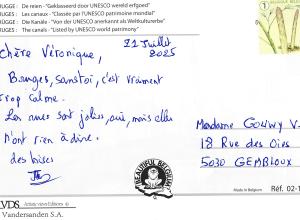 RUGGE : De reien - "Geklasseerd door UNESCO wereld erfgoed"
RUGES : Les canaux - "Classée par UNESCO patrimoine mondial"
RÜGGE : Die Kanäle - "Von der UNESCO anerkannt als Weltkulturerbe"
RUGES : The canals - "Listed by UNESCO world patrimony"
21 Juillet
2025
Chère Véronique,
Bruges, sans toi, c'est vraiment
trop calme.
Les rues sont jolies, oui, mais elles
n'ont rien à dire.
des bises
Madame GOUWY V.
18 Rue des Oies
5030 GEMBLOUX
1
BEAUTIFUL BELGIUM
Made in Belgium
Réf. 02-1
VDS
Vandersanden S.A.